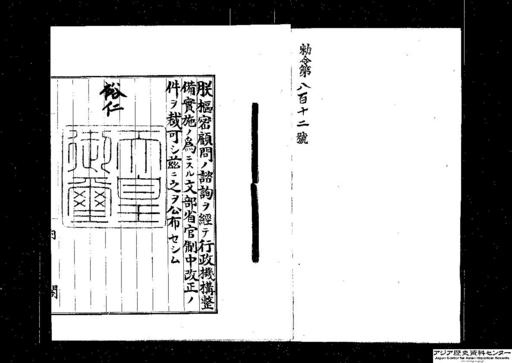 勅令第八百十二號
朕樞密顧問ノ諮詢ヲ經テ行政機構整
備實施ノ爲ニスル文部省官制中改正ノ
件ヲ裁可シ茲ニ之ヲ公布セシム
裕仁
天皇
御璽
内
閣
アジア歴史資料センター
Japan Center for Asian Historical Records